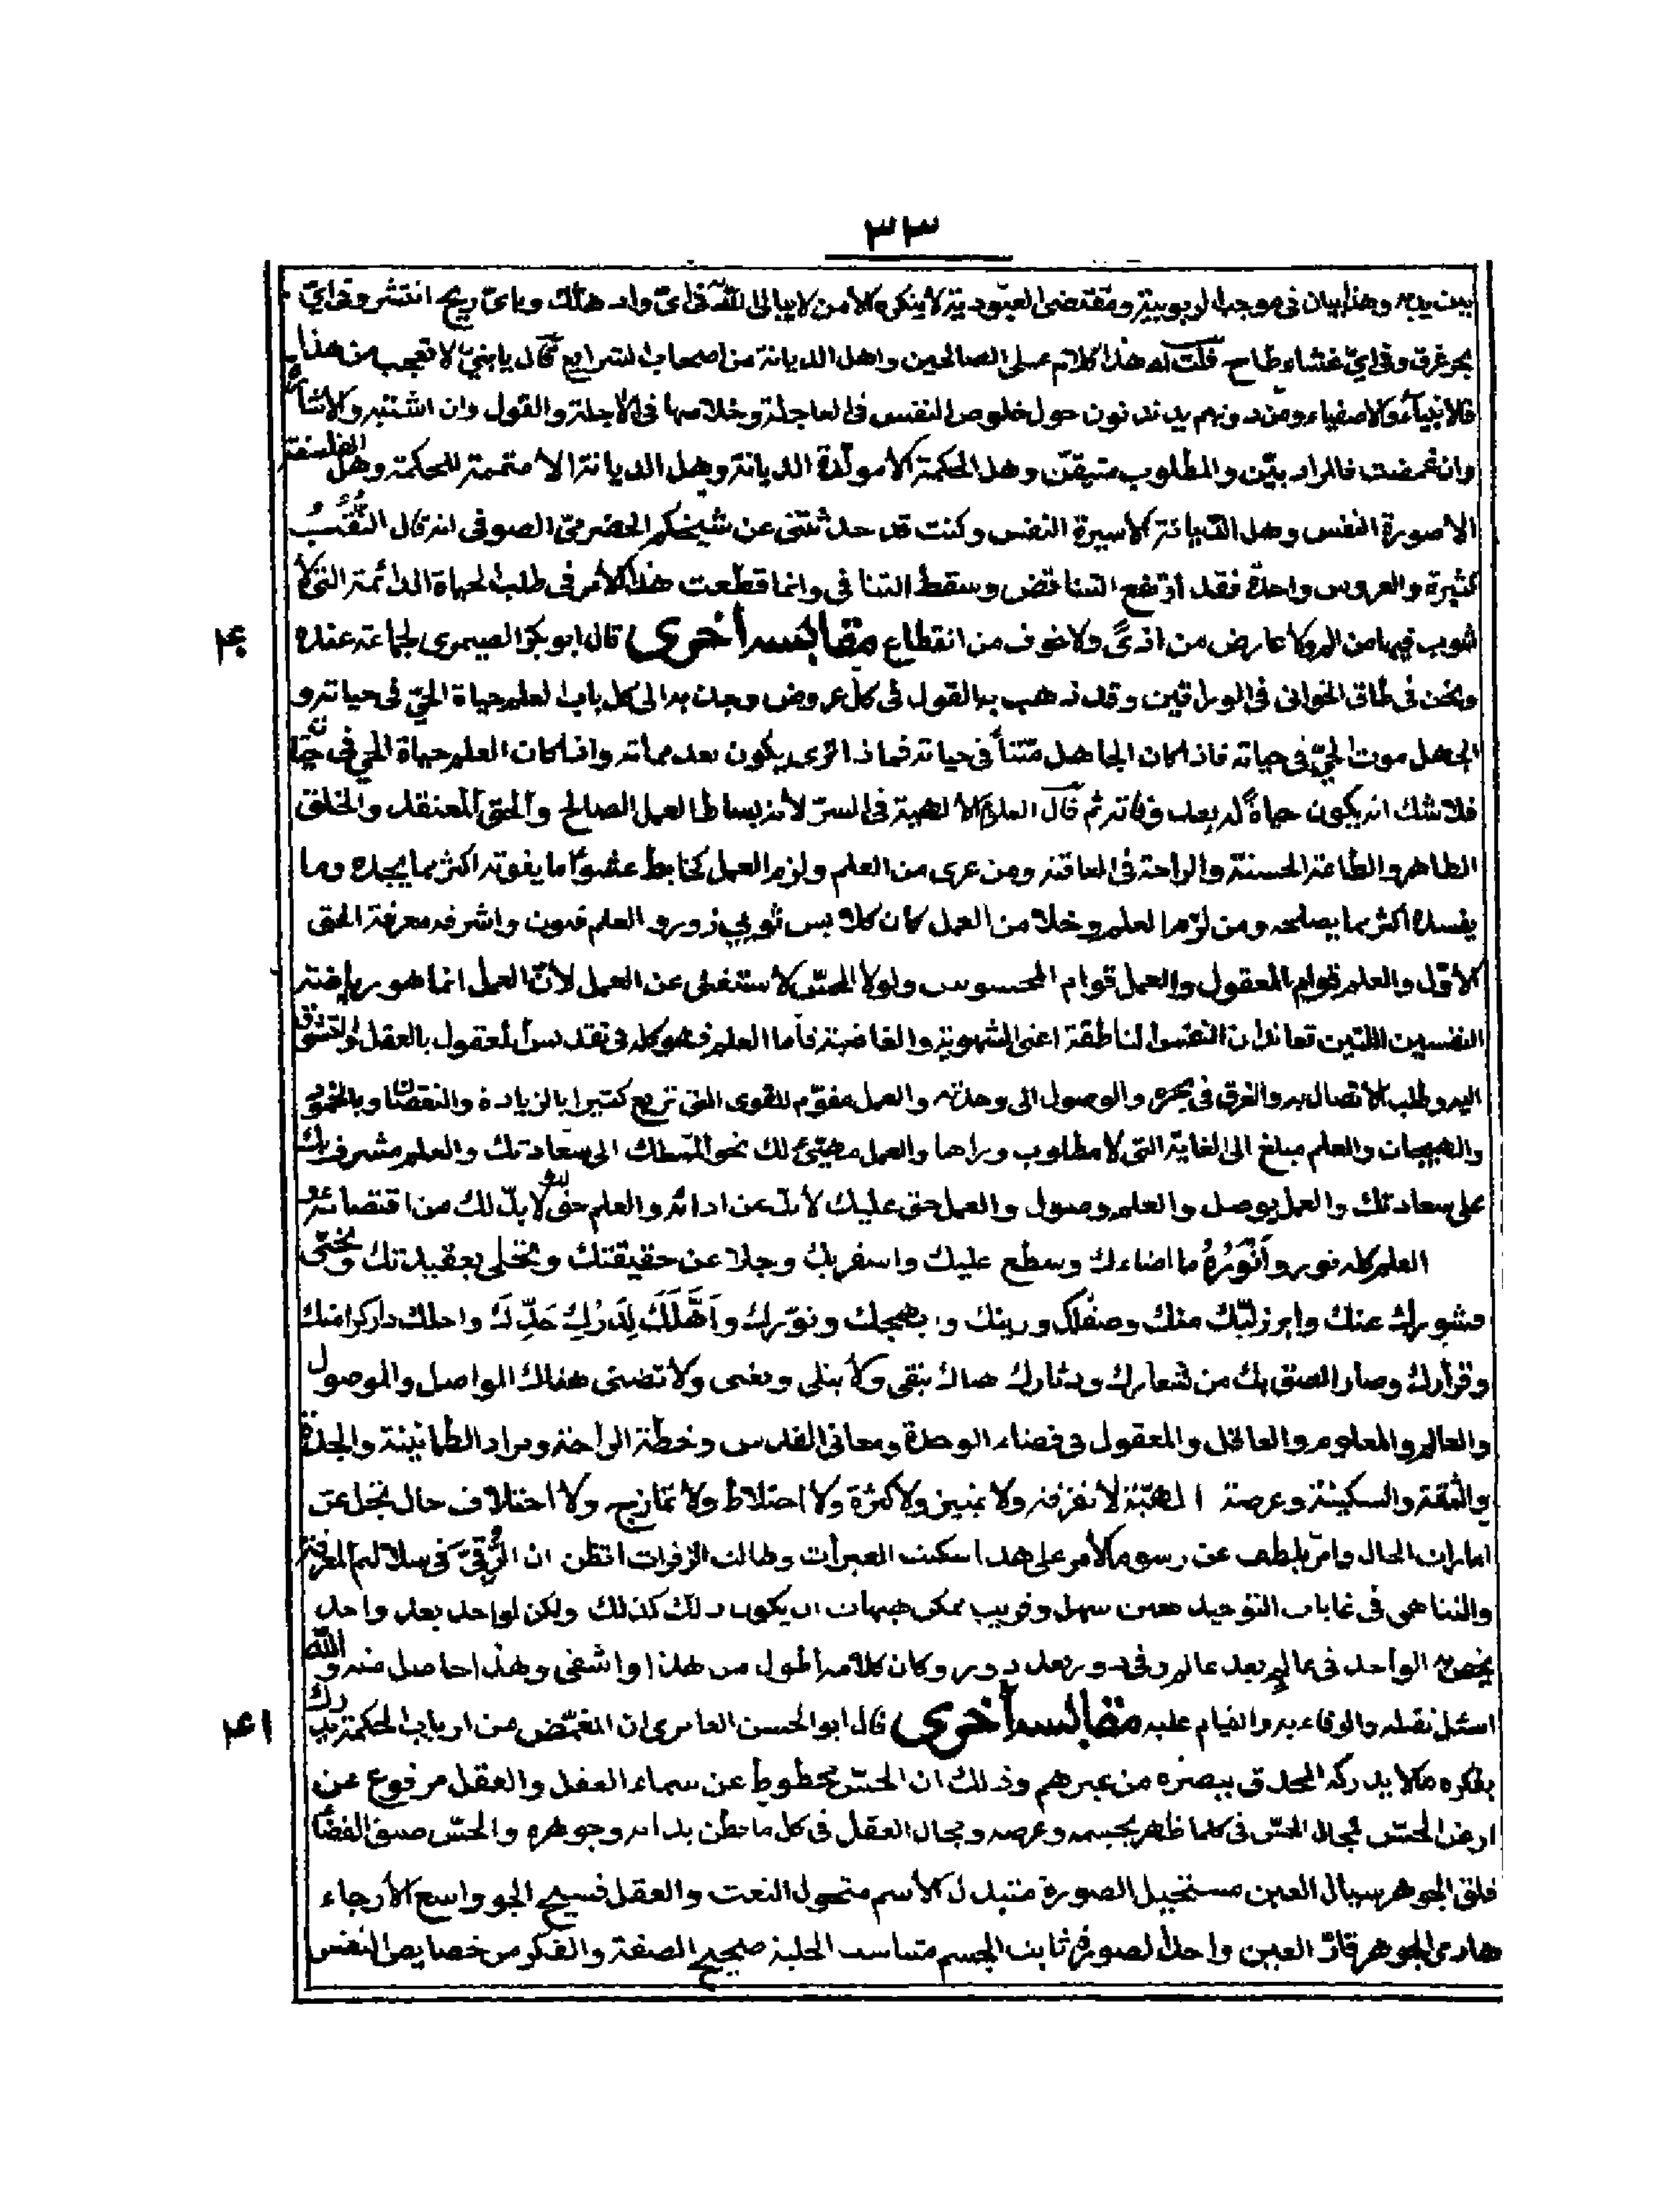 ٣٣
بين يديه وهذا بيان في موجب الربوبية ومقتضى العبودية لا ينكره الا من لا يبالي الله في اي واد هلك وباي ريح انتشر وفي اي
بحر غرق وفي اي غشاء طاح قلت له هذا كلام على الصالحين واهل الديانة من اصحاب الشرايع قال يا بني لا تعجب من هذا
فالانبياء والاصفياء ومن دونهم يدندنون حول خلوص النفس في العاجلة وخلاصها في الاجلة والقول وان اشتبه والاشارة
وان غمضت فالمراد بيّن والمطلوب متيقّن وهل الحكمة الا مولّدة الديانة وهل الديانة الا متممة للحكمة وهل الفلسفة
الا صورة النفس وهل الديانة الا سيرة النفس وكنت قد حدثتني عن شيخكم الحضرميّ الصوفي انه قال النُّقُبُ
كثيرة والعروس واحدة فقد ارتفع التناقض وسقط التنافي وانما قطعت هذا الامر في طلب الحياة الدائمة التي لا
شوب فيها من الم ولا عارض من اذىً ولا خوف من انقطاع مقابسة أخرى قال ابو بكر الصيمري لجماعة عنده
٤٠
ونحن في طاق الحراني في الوراقين وقد ذهب به القول في كل عروض وجدّ به الى كل باب العلم حياة الحيّ في حياته و
الجهل موت الحيّ في حياته فاذا كان الجاهل ميّتاً في حياته فماذا ترى يكون بعد مماته واذا كان العلم حياة الحي في حياته
فلا شك انه يكون حياةً له بعد وفاته ثم قال العلم الالهية في السرّ لانه بساط العمل الصالح والحق المعتقد والخلق
الطاهر والطاعة الحسنة والراحة في العاقبة ومن عرى من العلم ولزم العمل كخابط عشواء ما يفوته اكثر مما يجده وما
يفسده اكثر مما يصلحه ومن لزم العلم وخلا من العمل كان كلابس ثوبي زور والعلم فنون واشرفه معرفة الحق
الاوّل والعلم قوام المعقول والعمل قوام المحسوس ولولا الحسّ لاستغنى عن العمل لأنّ العمل انما هو رياضة
النفسين اللتين تعاندان النفس الناطقة اعنى الشهوية والغاضبة فاما العلم فهو كله في تقديس المعقول بالعقل والتشوق
اليه وطلب الاتصال به والغرق في بحره والوصول الى وحدته والعمل مقوّم للقوى التي تزيغ كثيرا بالزيادة والنقصان وبالخمود
والهيجان والعلم مبلغ الى الغاية التي لا مطلوب وراءها والعمل مهيّئ لك نحو المسلك الى سعادتك والعلم مشرف بك
على سعادتك والعمل يوصل والعلم وصول والعمل حق عليك لا بدّ من ادائه والعلم حق لك لا بدّ لك من اقتضائه و
العلم كله نور وأَنْوَرُهُ ما اضاءك وسطع عليك واسفر بك وجلا عن حقيقتك وتحلى بعقيدتك ونحّى
قشورك عنك وابرز لبّك منك وصفّاك وزينك وبهجك ونوّرك وأَهَّلَكَ لِدَرْكِ حَدِّكَ واحلك دار كرامتك
وقرارك وصار الصق بك من شعارك ودثارك هناك تبقى ولا تبلى وتغنى ولا تضنى هناك الواصل والموصول
والعالم والمعلوم والعاقل والمعقول في فضاء الوحدة ومعاني القدس وخطة الراحة ومراد الطمانينة والجدة
والثقة والسكينة وعرصة المحبة لا تفرقة ولا تمييز ولا كثرة ولا اختلاط ولا تمازج ولا اختلاف حال تجل عن
امارات الحال وامر يلطف عن رسوم الامر على هذا اسكبت العبرات وطالت الزفرات اتظن ان الرُّقيَّ في سلالم المعرفة
والتناهي في غايات التوحيد هين سهل وقريب ممكن هيهات ان يكون ذلك كذلك ولكن لواحد بعد واحد
يخصه الواحد في عالم بعد عالم وفي دور بعد دور وكان كلامه اطول من هذا واشفى وهذا حاصل منه والله
اسئل نفعله والوفاء به والقيام عليه مقابسة أخرى قال ابو الحسن العامري ان المغمّض من ارباب الحكمة يدرك
٤١
بفكره ما لا يدركه المحدق ببصره من غيرهم وذلك ان الحسّ محطوط عن سماء العقل والعقل مرفوع عن
ارض الحسّ فمجال الحسّ في كلما ظهر بجسمه وعرضه ومجال العقل في كل ما بطن بذاته وجوهره والحسّ ضيق الفضاء
قلق الجوهر سيال العين مستحيل الصورة متبدل الاسم متحول النعت والعقل فسيح الجو واسع الأرجاء
هادئ الجوهر قارّ العين واحد الصورة ثابت الجسم متناسب الحلية صحيح الصفة والفكر من خصايص النفس